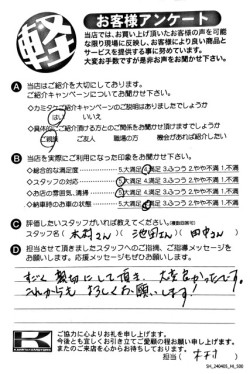 軽
お客様アンケート
当店では、お買い上げ頂いたお客様の声を可能
な限り現場に反映し、お客様により良い商品と
サービスを提供する事に努めています。
大変お手数ですが是非お声をお聞かせ下さい。
A 当店はご紹介を大切にしております。
ご紹介キャンペーンについてお聞かせ下さい。
◇カミタケご紹介キャンペーンのご説明はありましたでしょうか
はい いいえ
◇具体的にご紹介頂ける方とのご関係をお聞かせ頂けますでしょうか
ご親族 ご友人 職場の方 機会があれば紹介したい
B 当店を実際にご利用になった印象をお聞かせ下さい。
◇総合的な満足度 5.大満足 4.満足 3.ふつう 2.やや不満 1.不満
◇スタッフの対応 5.大満足 4.満足 3.ふつう 2.やや不満 1.不満
◇お店の雰囲気、清掃 5.大満足 4.満足 3.ふつう 2.やや不満 1.不満
◇納車時のお車の状態 5.大満足 4.満足 3.ふつう 2.やや不満 1.不満
C 評価したいスタッフがいれば教えてください。(複数回答可)
スタッフ名( 木村さん )( 池田さん )( 田中さん )
D 担当させて頂きましたスタッフへのご指摘、ご指導メッセージを
お願いします。応援メッセージもぜひお願いします。
すごく親切にして頂き、大変良かったです。
これからもよろしくお願いします!
K
ご協力に心よりお礼を申し上げます。
今後とも宜しくお引き立てご愛顧の程お願い申し上げます。
またのご来店を心からお待ちしております。
担当( 木村 )
SH_240403_HI_000